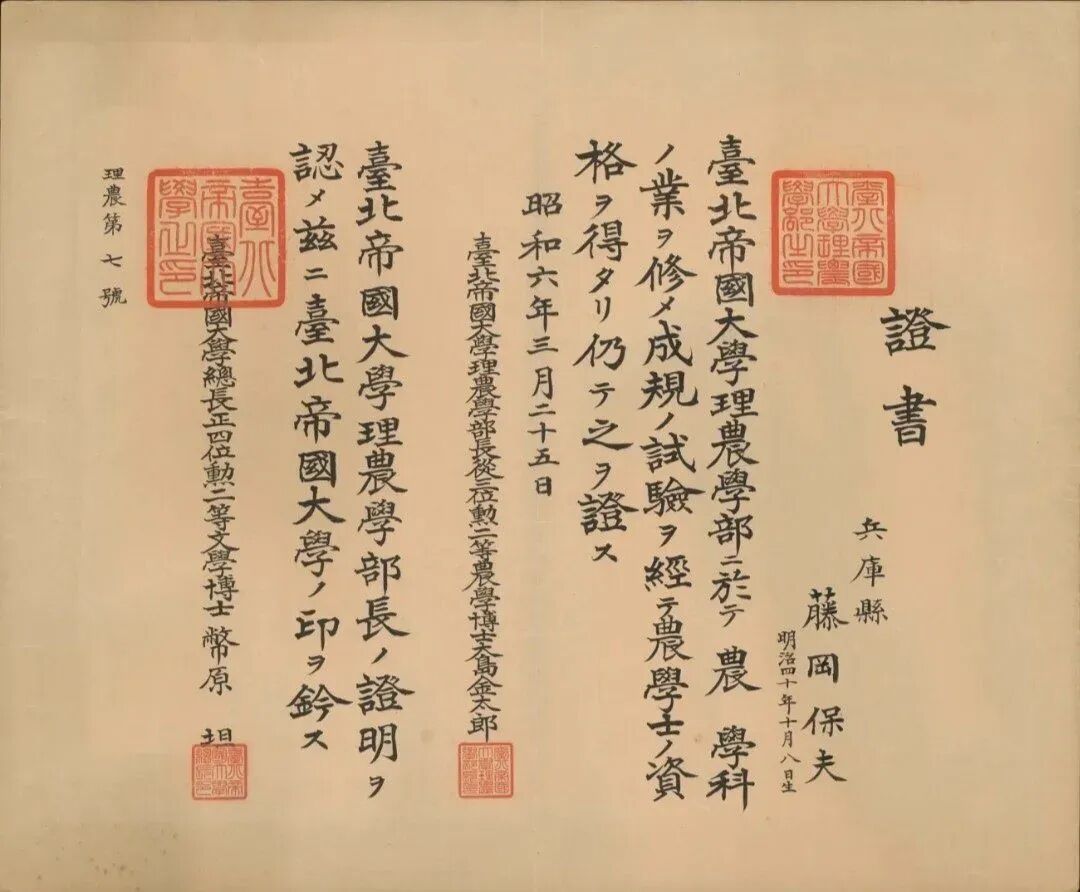 證書
兵庫縣
藤岡保夫
明治四十年十月八日生
臺北帝國大學理農學部ニ於テ農學科
ノ業ヲ修メ成規ノ試驗ヲ經テ農學士ノ資
格ヲ得タリ仍テ之ヲ證ス
昭和六年三月二十五日
臺北帝國大學理農學部長從三位勲二等農學博士大島金太郎
臺北帝國大學理農學部長ノ證明ヲ
認メ茲ニ臺北帝國大學ノ印ヲ鈐ス
臺北帝國大學總長正四位勲二等文學博士幣原坦
理農第七號
臺北帝國
大學理農
學部之印
臺北
帝國大
學之印